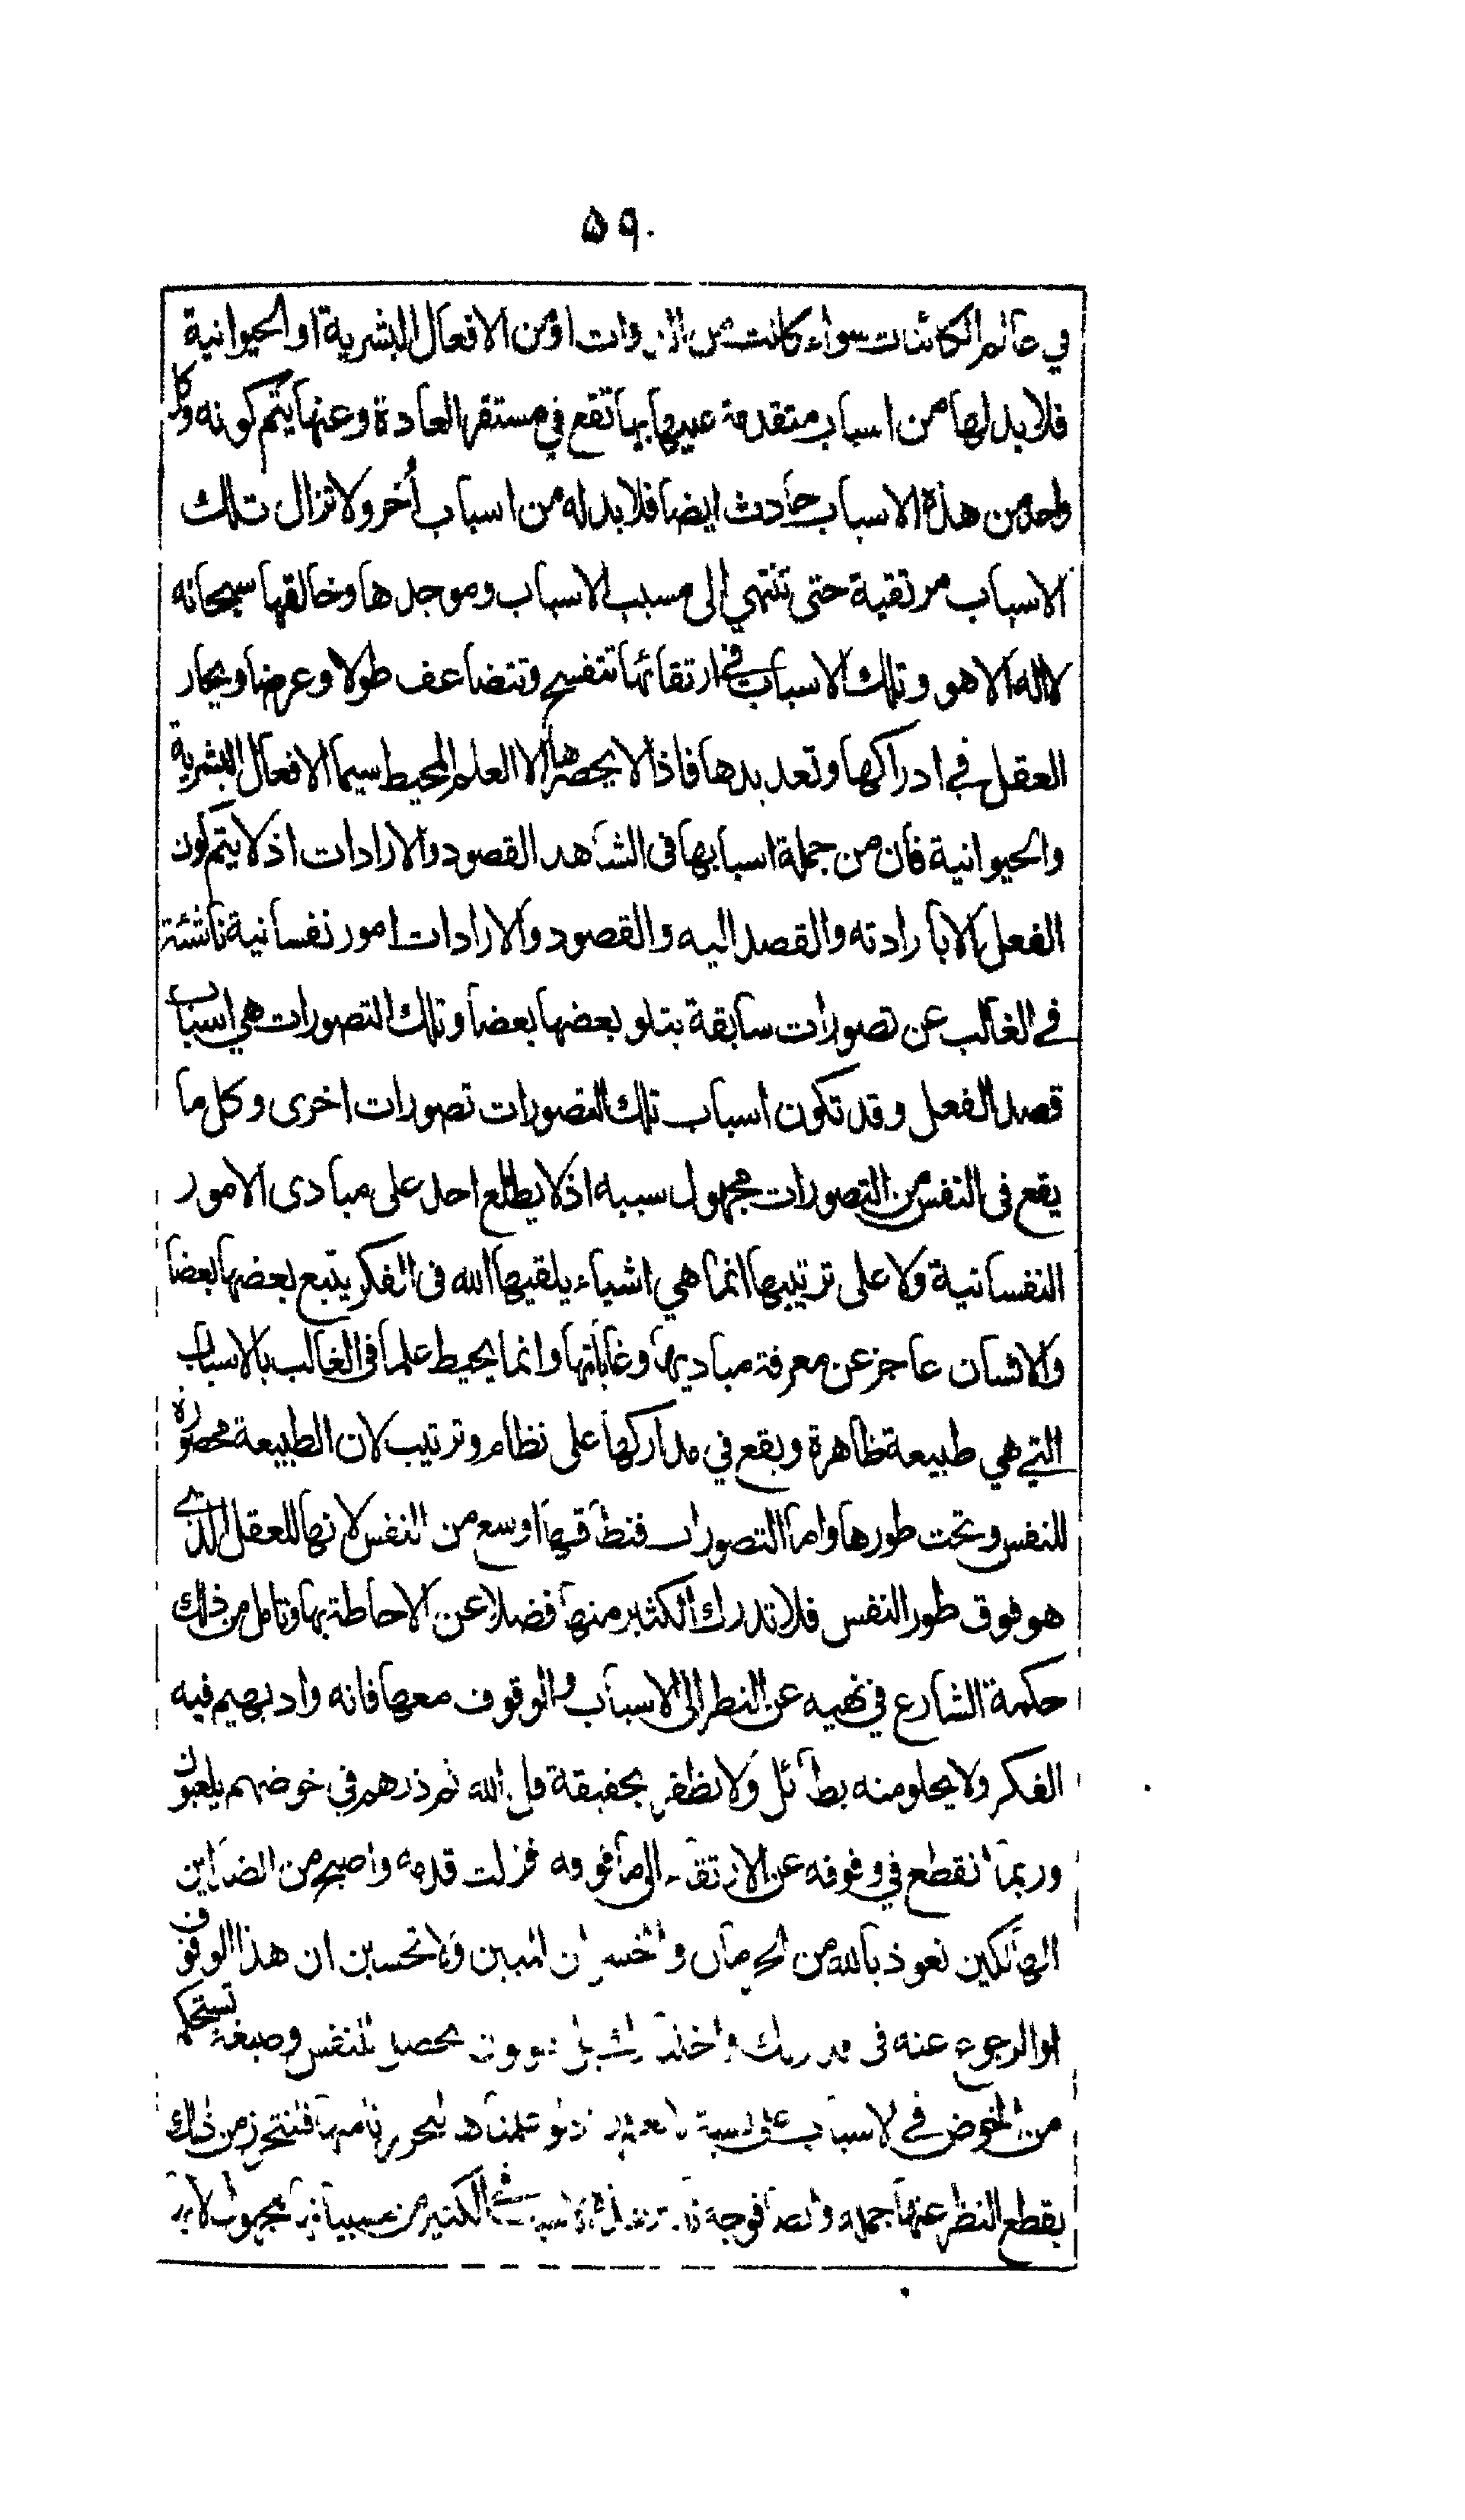 ٥٩٠
في عالم الكائنات سواء كانت من الذوات او من الافعال البشرية او الحيوانية
فلا بد لها من اسباب متقدمة عليها بها تقع في مستقر العادة وعنها يتم كونه وكل
واحد من هذة الاسباب حادث ايضا فلا بد له من اسباب أخر ولا تزال تلك
الاسباب مرتقية حتى تنتهي الى مسبب الاسباب وموجدها وخالقها سبحانه
لا اله الا هو وتلك الاسباب في ارتقائها تتفسح وتتضاعف طولا وعرضا ويحار
العقل في ادراكها وتعديدها فاذا لا يحصرها الا العلم المحيط سيما الافعال البشرية
والحيوانية فان من جملة اسبابها فى الشاهد القصود والارادات اذ لا يتم كون
الفعل الا بارادته والقصد اليه والقصود والارادات امور نفسانية ناشئة
في الغالب عن تصورات سابقة يتلو بعضها بعضا وتلك التصورات هي اسباب
قصد الفعل وقد تكون اسباب تلك التصورات تصورات اخرى وكل ما
يقع فى النفس من التصورات مجهول سببه اذ لا يطلع احد على مبادى الامور
النفسانية ولا على ترتيبها انما هي اشياء يلقيها الله فى الفكر يتبع بعضها بعضا
والانسان عاجز عن معرفة مباديها وغاياتها وانما يحيط علما فى الغالب بالاسباب
التي هي طبيعة ظاهرة ويقع في مداركها على نظام وترتيب لان الطبيعة محصورة
للنفس وتحت طورها واما التصورات فنطاقها اوسع من النفس لانها للعقل الذي
هو فوق طور النفس فلا تدرك الكثير منها فضلا عن الاحاطة بها وتامل من ذلك
حكمة الشارع في نهيه عن النظر الى الاسباب والوقوف معها فانه واد يهيم فيه
الفكر ولا يحلو منه بطائل ولا يظفر بحقيقة قل الله ثم ذرهم في خوضهم يلعبون
وربما انقطع في وقوفه عن الارتقاء الى ما فوقه فزلت قدمه واصبح من الضالين
الهالكين نعوذ بالله من الحرمان والخسران المبين ولا تحسبن ان هذا الوقوف
او الرجوع عنه فى قدرتك واختيارك بل هو لون يحصل للنفس وصبغة تستحكم
من الخوض في الاسباب على نسبة لا نعلمها اذ لو علمناها لتحررنا منها فلنتحرز من ذلك
بقطع النظر عنها جملة وايضا فوجه تاثير هذه الاسباب في الكثير من مسبباتها مجهول لانها